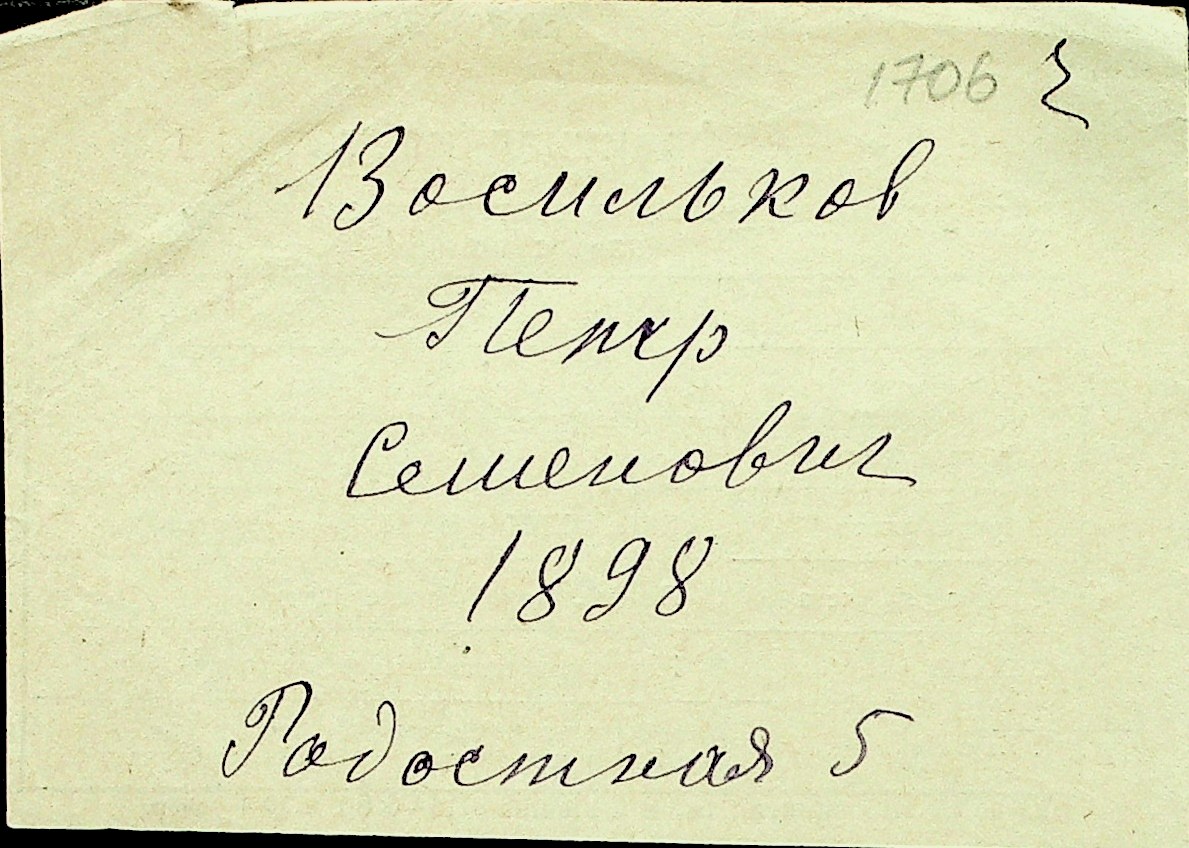 1706
Васильков
Петр
Семенович
1898
Радостная 5